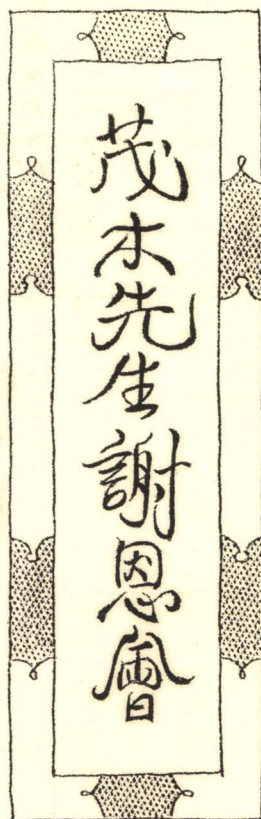 茂木先生謝恩會